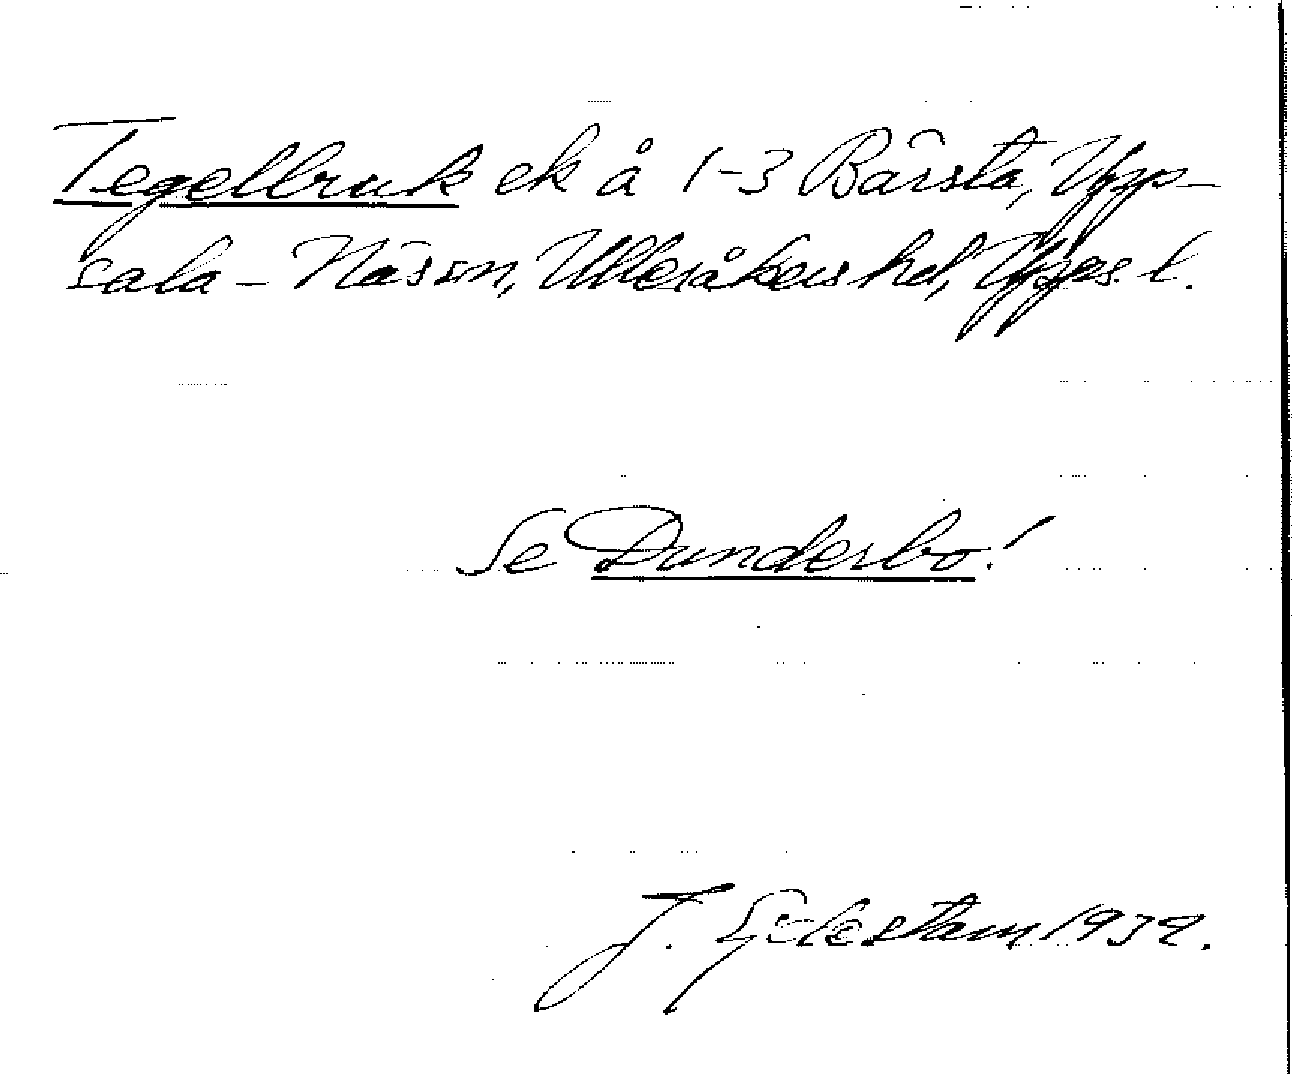 Tegelbruk ek å 1-3 Bärsta, Upp-
sala - Näs sn, Ulleråkers hd, Upps. l.
Se Dunderbo!
J. 1939.